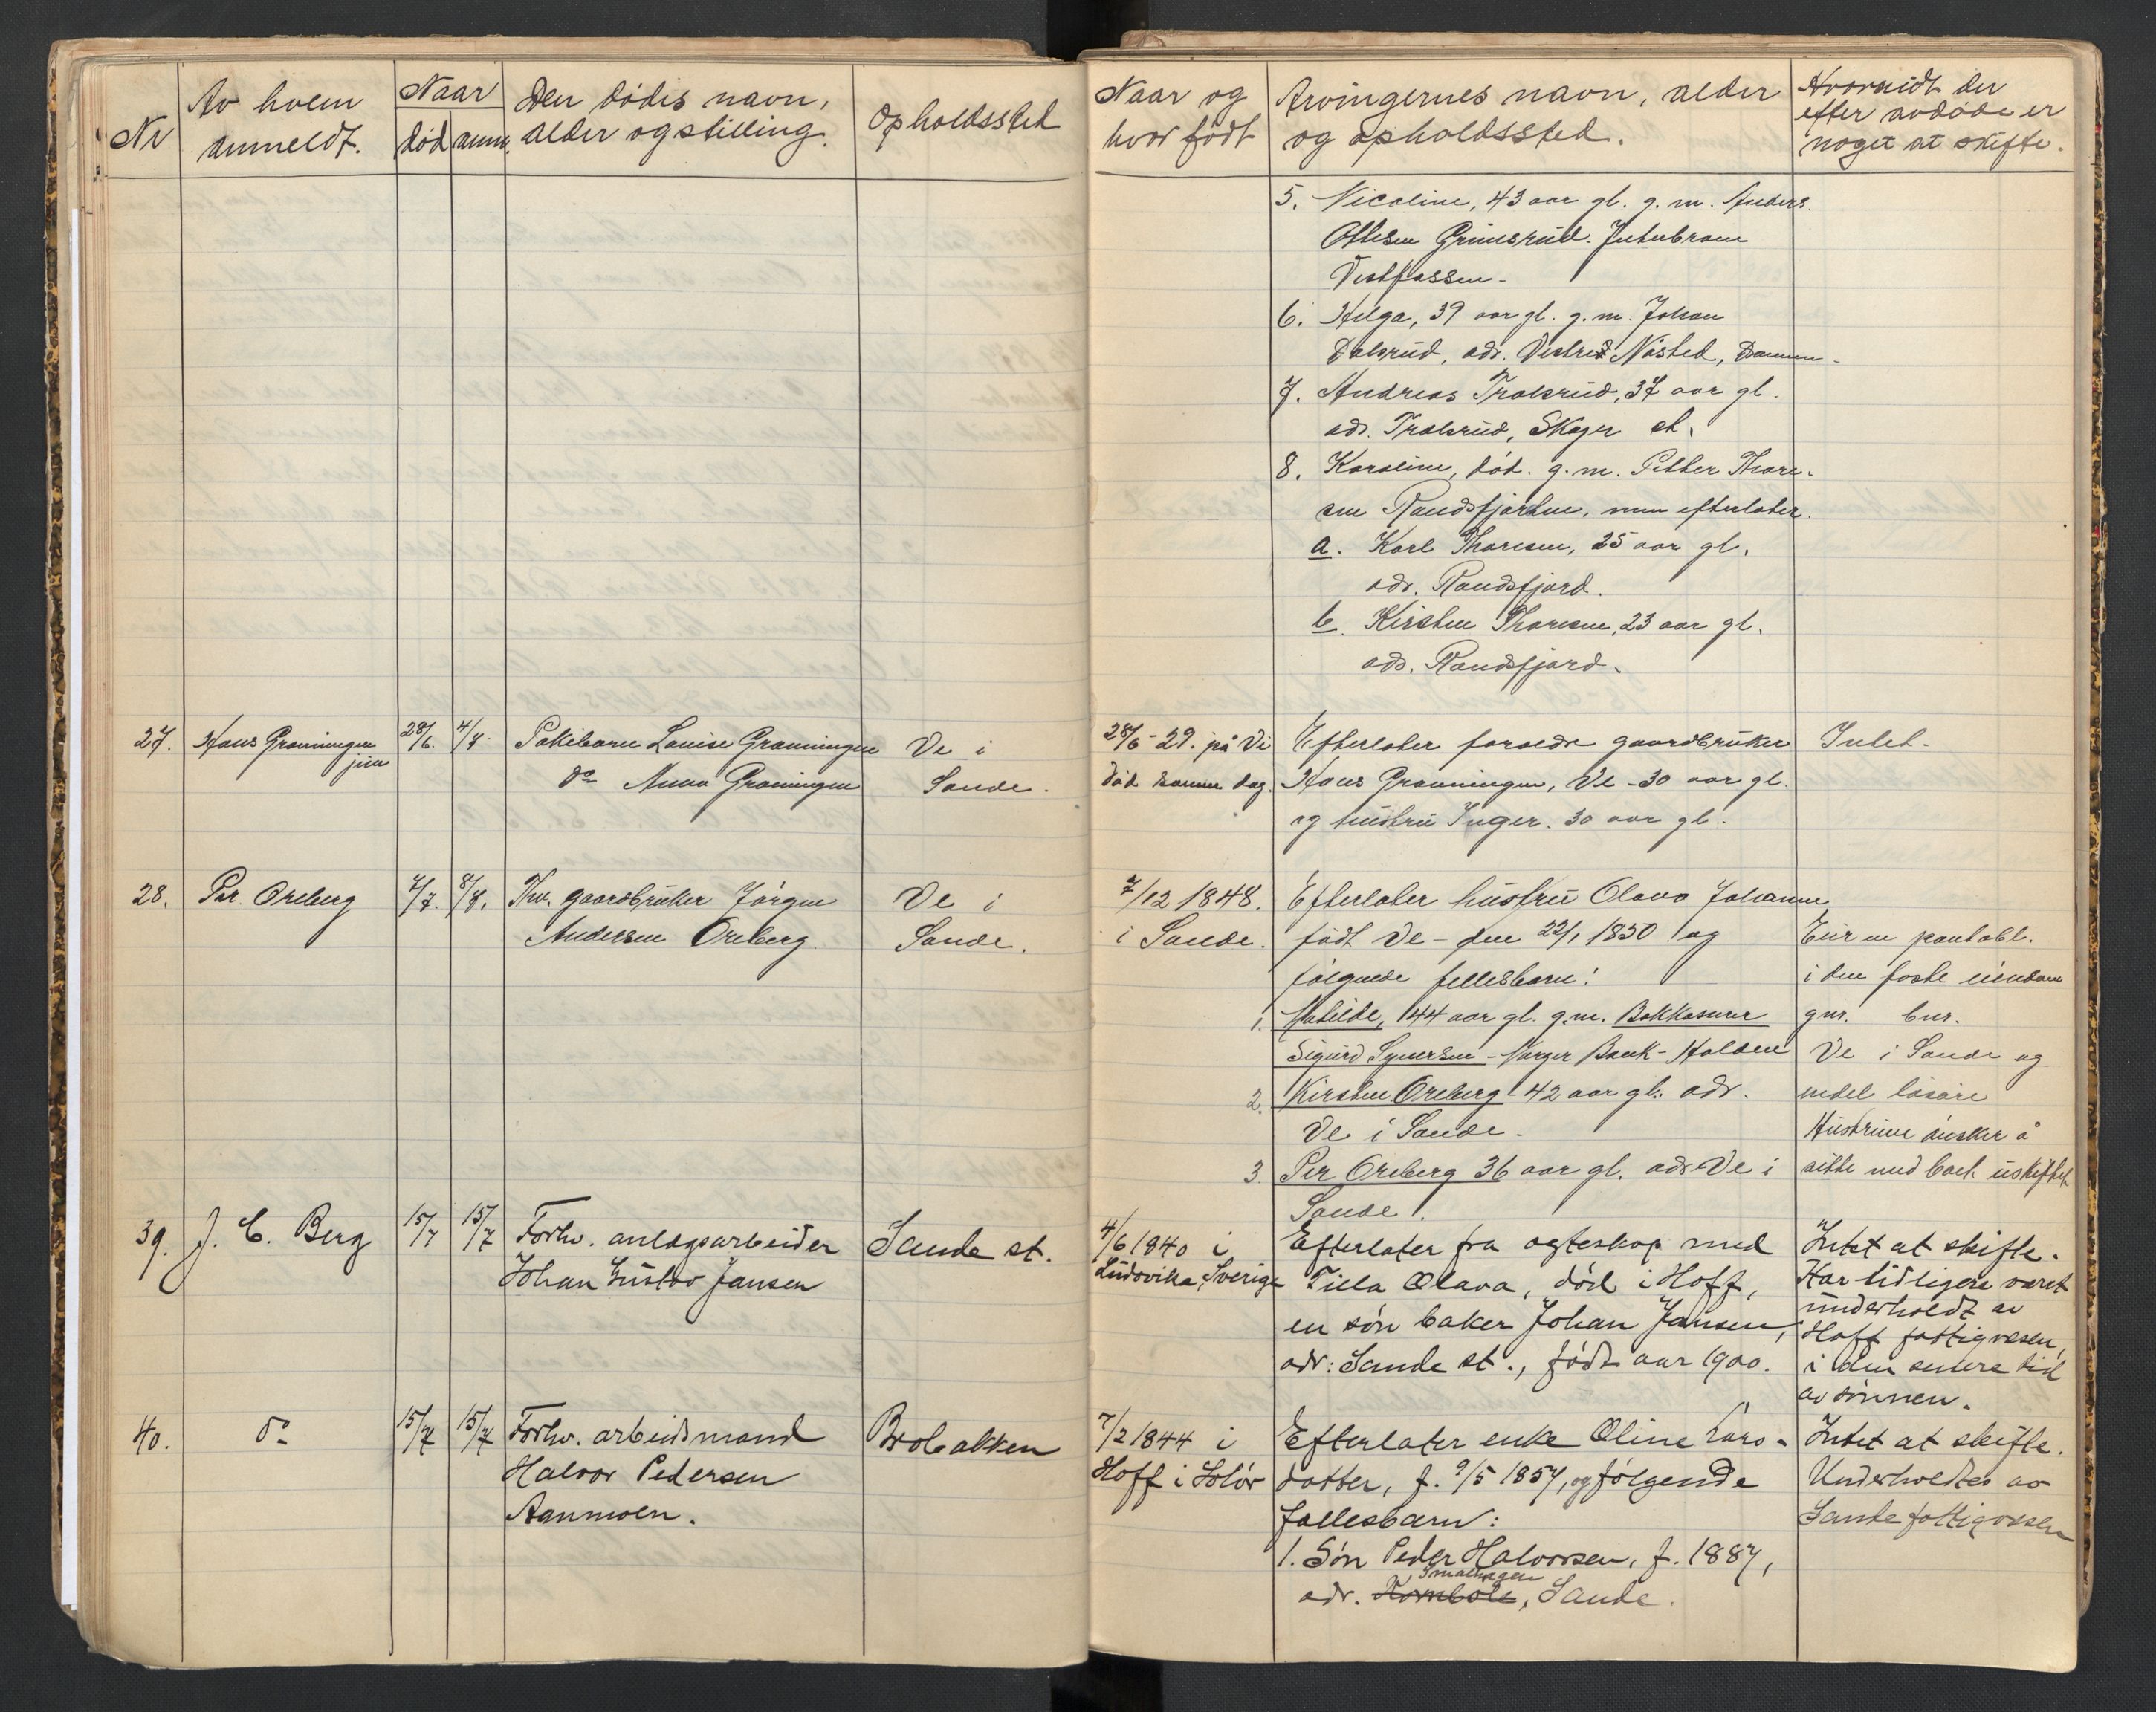 Nr
Av hvem anmeldt.
Naar
død
anm.
Den dødes navn, alder og stilling.
Opholdssted
Naar og hvor født
Arvingernes navn, alder og opholdssted.
Hvorvidt der efter avdøde er noget at skifte.
5. Nicoline, 43 aar gl. g. m. Anders
Ottesen Grimsrud.
Vestfossen.
6. Helga, 39 aar gl. g. m. Johan
Dalsrud, adr. Vestre Nøsted,
7. Andreas Tralsrud, 37 aar gl.
adr. Tralsrud, Skoger st.
8. Karoline, død. g. m. Petter Thore-
sen Randsfjorden, som efterlater.
a. Karl Thoresen, 25 aar gl.
adr. Randsfjord.
b. Kirsten Thoresen, 23 aar gl.
adr. Randsfjord.
27.
Hans Grønningen
jun
28/6.
4/7.
Pikebarn Louise Grønningen
do Anna Grønningen
Ve i
Sande.
28/6-29. på Ve
død samme dag.
Efterlater foreldre gaardbruker
Hans Grønningen, Ve - 30 aar gl.
og hustru Inger. 30 aar gl.
Intet.
28.
Per Oreberg
7/7.
8/7.
Fhv. gaardbruker Jørgen
Andersen Oreberg
Ve i
Sande.
7/12 1848.
i Sande.
Efterlater hustru Olava Johanne
født Ve - den 22/1 1850 og
følgende fellesbarn:
1. Matilde, 44 aar gl. g.m. Bokkasserer
Sigurd Syversen - Norges Bank - Halden
2. Kirsten Oreberg 42 aar gl. adr.
Ve i Sande.
3. Per Oreberg 36 aar gl. adr Ve i
Sande.
Eier en pantobl.
i den faste eiendom
gnr. bnr.
Ve i Sande og
endel løsøre
Hustruen ønsker å
sitte med boet uskiftet
39.
J. C. Berg
15/7
15/7
Forhv. anlægsarbeider
Johan Gustav Jansen
Sande st.
4/6 1840 i
Ludovika, Sverige
Efterlater fra egteskap med
Tilla Olava, død i Hoff,
en søn baker Johan Jansen,
adr: Sande st., født aar 1900.
Intet at skifte.
Har tidligere været
underholdt av
Hoff fattigvæsen,
i den senere tid
av sønnen.
40.
do
15/7
15/7
Forhv. arbeidsmand
Halvor Pedersen
Aanmoen.
Brobakken
7/2 1844 i
Hoff i Solør
Efterlater enke Oline Lars-
datter, f. 9/5 1857, og følgende
fællesbarn:
1. Søn Peder Halvorsen, f. 1887,
Smalhagen
adr. Kombole, Sande.
Intet at skifte.
Underholdtes av
Sande fattigvæsen